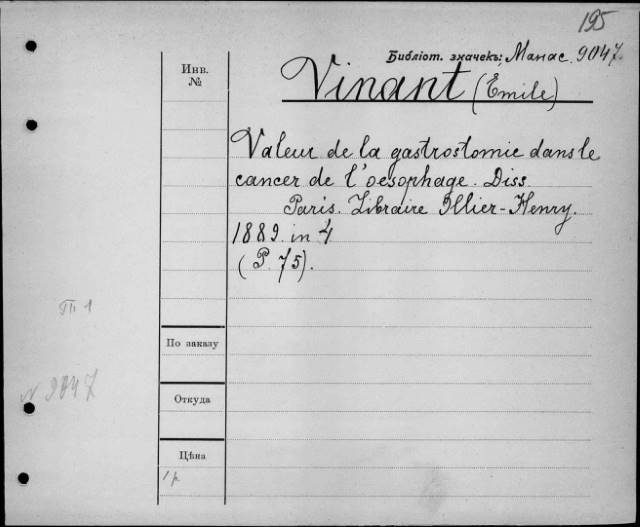 195
Библіот. значекъ: Манас. 9047.
Инв.
№
Vinant (Emile)
Valeur de la gastrostomie dans le
cancer de l'oesophage. Diss.
Paris. Libraire Ollier-Henry.
1889. in 4
(P. 75).
По заказу
N 9047
Откуда
Цѣна
1 р